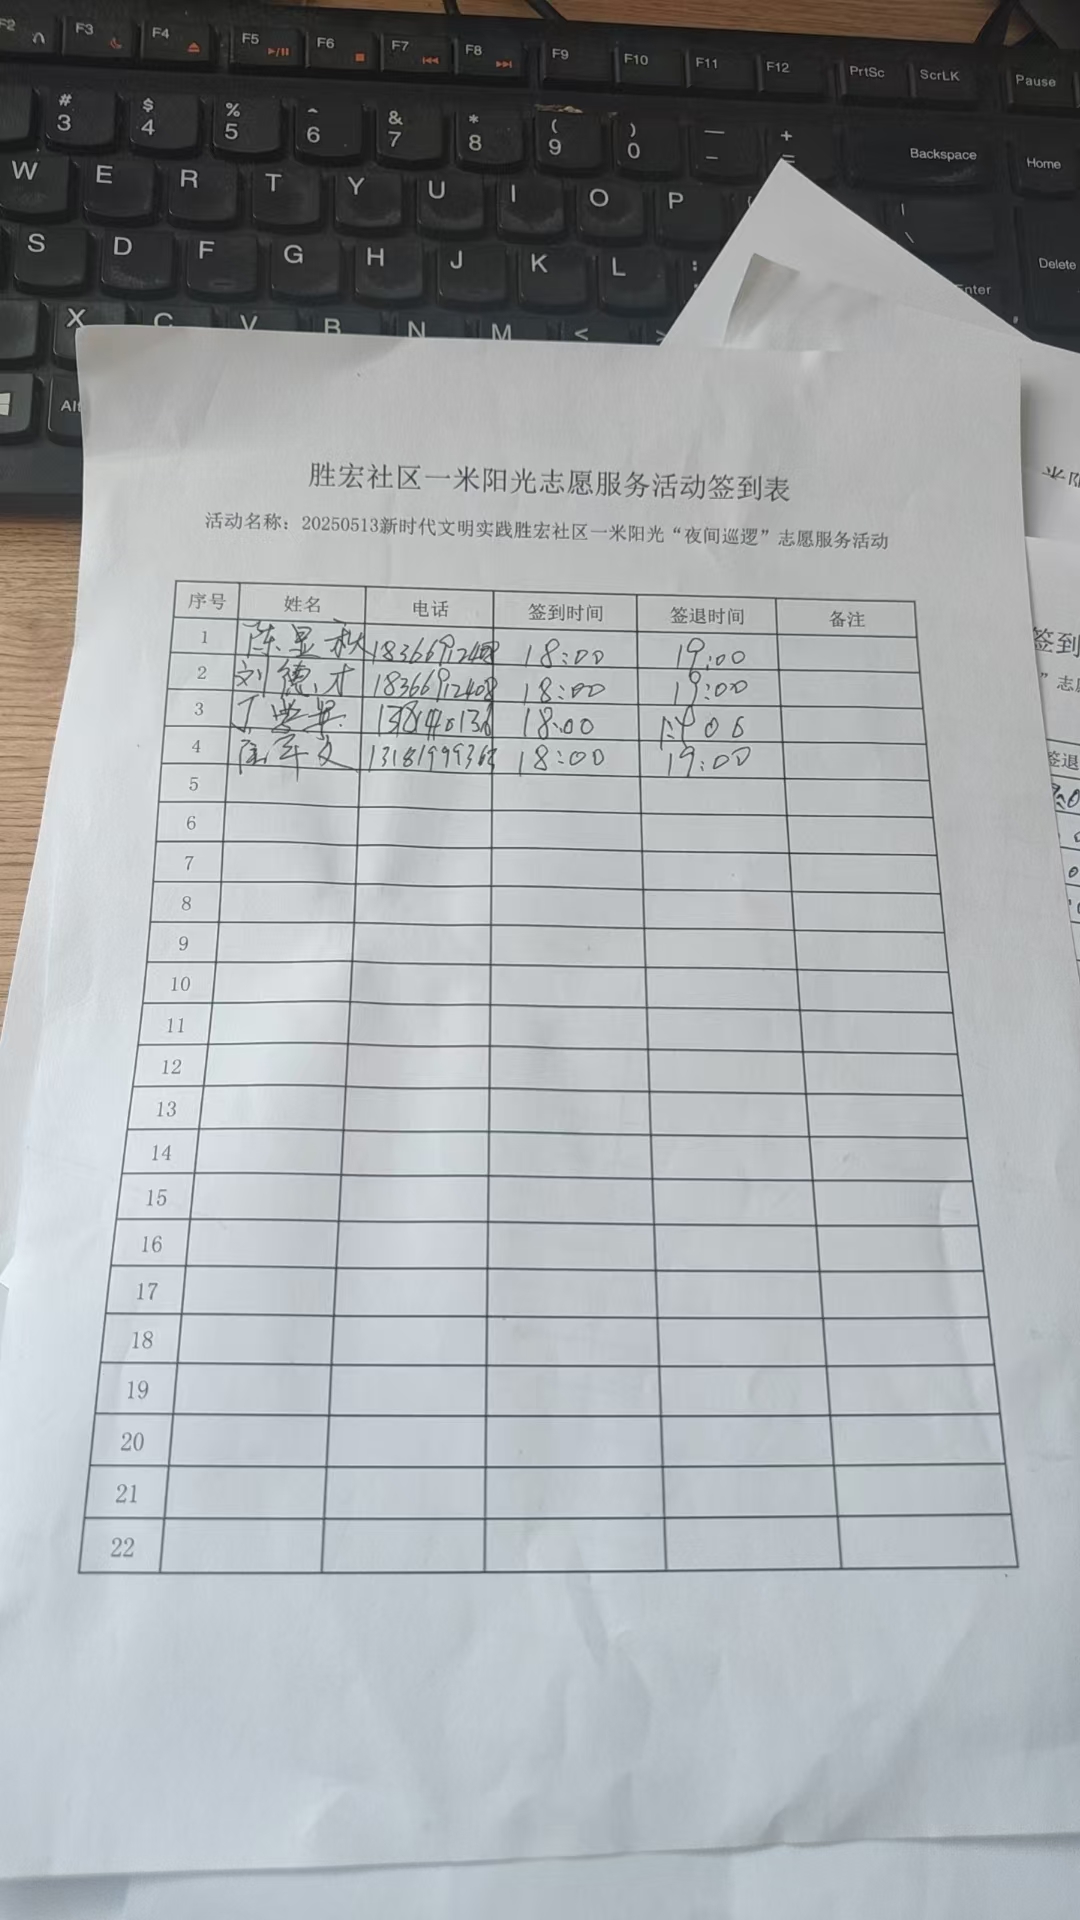 F2 F3 F4 F5 F6 F7 F8 F9 F10 F11 F12 PrtSc ScrLK Pause
# 3 $ 4 % 5 ^ 6 & 7 * 8 ( 9 ) 0 — - + = Backspace Home
W E R T Y U I O P | \ Delete
S D F G H J K L : Enter
X C V B N M < >
Alt
胜宏社区一米阳光志愿服务活动签到表
活动名称：20250513新时代文明实践胜宏社区一米阳光“夜间巡逻”志愿服务活动
序号 姓名 电话 签到时间 签退时间 备注
1 陈显秋 18366912408 18:00 19:00
2 刘德才 18366912408 18:00 19:00
3 18:00
4 18:00 19:00
5
6
7
8
9
10
11
12
13
14
15
16
17
18
19
20
21
22
签到
签退